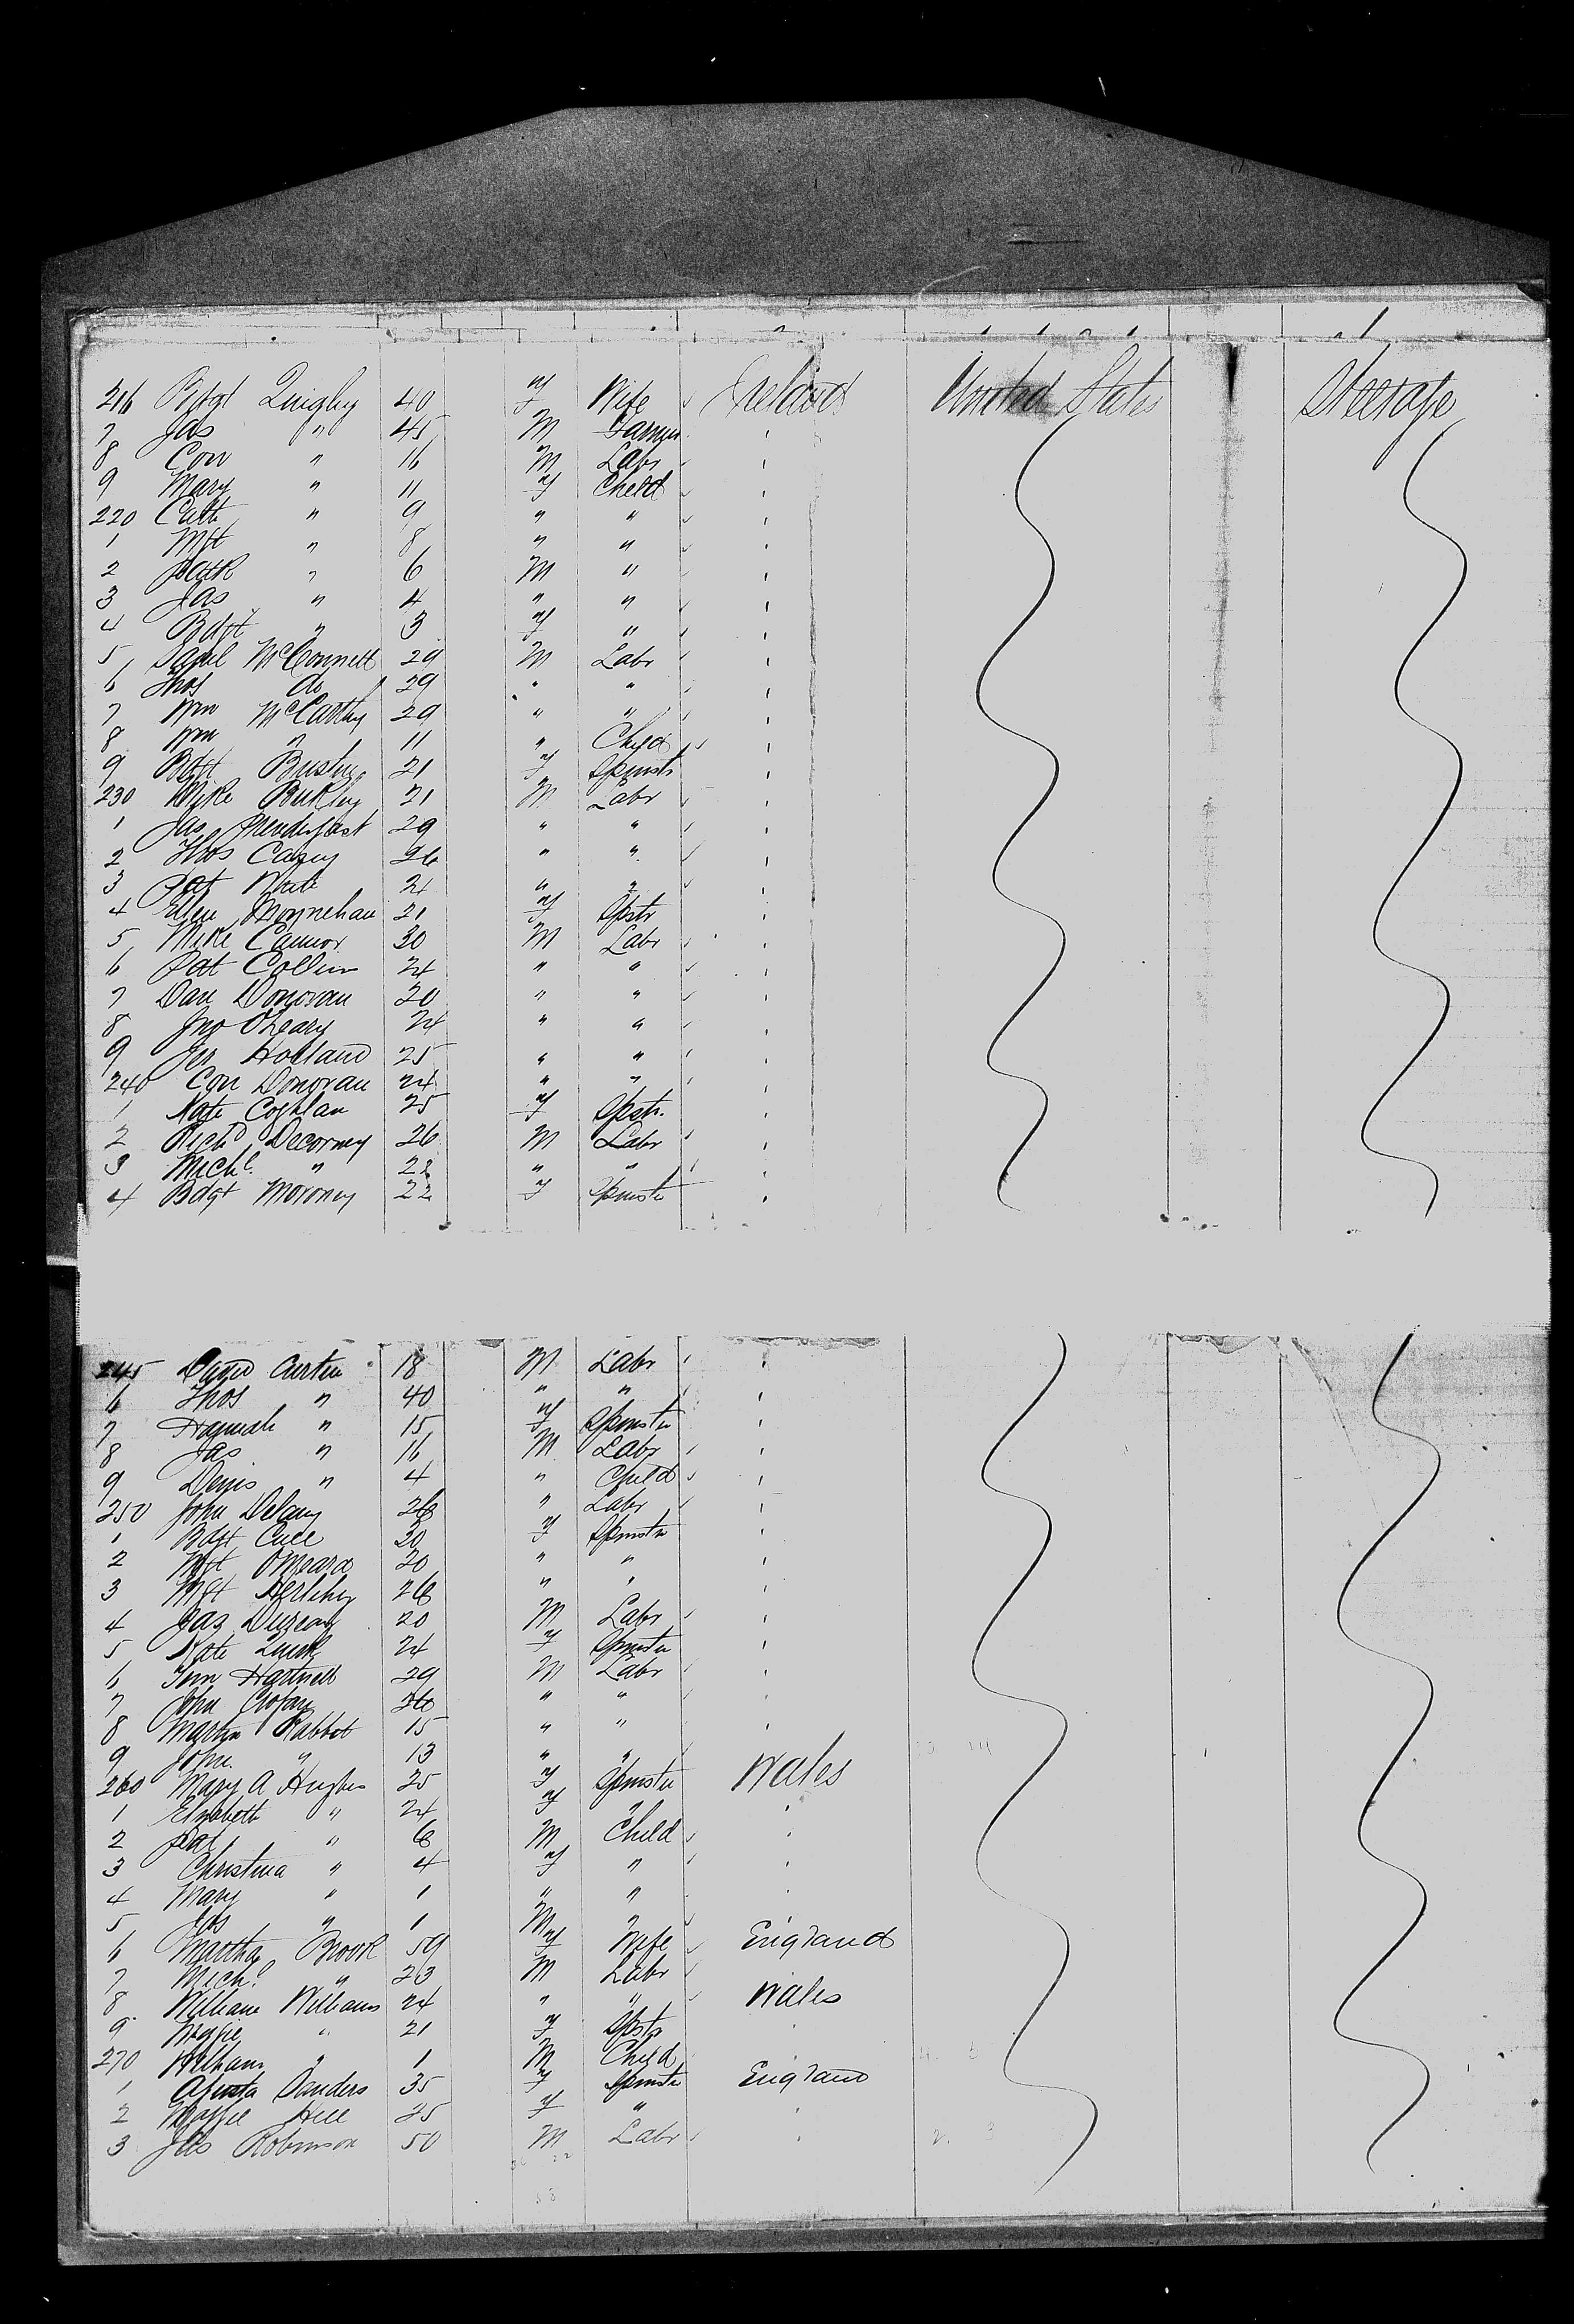 216 Bdgt Quigley 40 f Wife Ireland United States Steerage
7 Jas " 45 M Farmer "
8 Con " 16 M Labr "
9 Mary " 11 f Child "
220 Cath " 9 " " "
1 Mgt " 8 " " "
2 Patk " 6 M " "
3 Jas " 4 " " "
4 Bdgt " 3 f " "
5 Saml McConnell 29 M Labr "
6 Thos do 29 " " "
7 Wm McCarthy 29 " " "
8 Wm " 11 " Child "
9 Bdgt 21 f Spinstr "
230 Mike 21 M Labr "
1 Jas Prendergast 29 " " "
2 Thos Casey 26 " " "
3 Pat 24 " " "
4 Ellen Monnehan 21 f Spstr "
5 Mike Connor 30 M Labr "
6 Pat Collin 24 " " "
7 Dan Donovan 20 " " "
8 Jno O'Leary 24 " " "
9 Jer Holland 25 " " "
240 Con Donovan 24 " " "
1 Kate Coghlan 25 f Spstr. "
2 Richd Decorney 26 M Labr "
3 Michl. " 22 " " "
4 Bdgt Moroney 22 f Spinstr "
245 David Curtin 18 M Labr "
6 Thos " 40 " " "
7 Hannah " 15 f Spinstr "
8 Jas " 16 M Labr "
9 Denis " 4 " Child "
250 John Delany 26 " Labr "
1 Bdgt 20 f Spinstr "
2 Mgt OMeara 20 " " "
3 Mgt Herlihy 26 " " "
4 Jas 20 M Labr "
5 Kate Quirk 24 f Spinstr "
6 Tim Hartnett 29 M Labr "
7 John 26 " " "
8 Martin Rabbit 15 " " "
9 John " 13 " " "
260 Mary A Hughes 25 f Spinstr Wales
1 Elizabeth " 24 f " "
2 Pat " 6 M Child "
3 Christina " 4 f " "
4 Mary " 1 " " "
5 Jas " 1 M " "
6 Martha Brook 59 f Wife England
7 Michl. " 23 M Labr
8 William Williams 24 " " Wales
9 Maggie " 21 f Spstr "
270 William " 1 M Child
1 Agusta Sanders 35 f Spinstr England
2 Maggie Hill 25 f " "
3 Jas Robinson 50 M Labr "